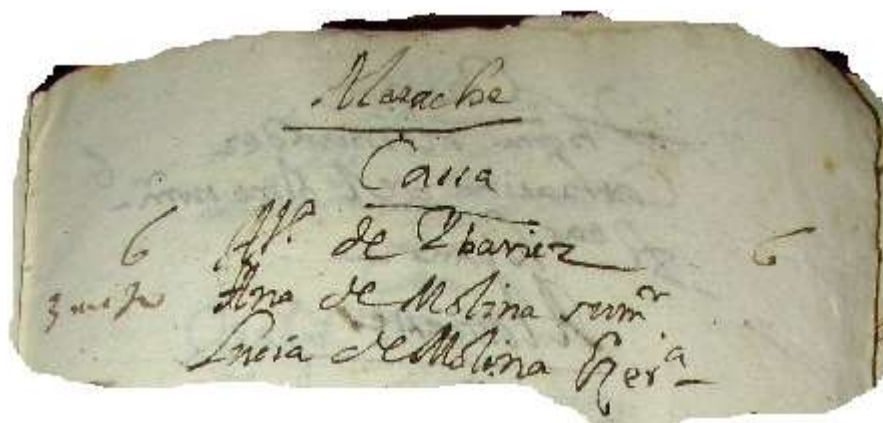 Marache
Cassa
6 Al.º de Ybañez 6
Ana de Molina sum^r
Lucia de Molina